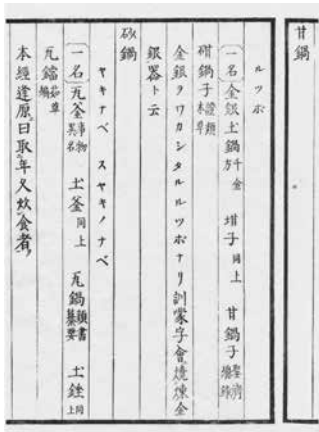 甘鍋
ルツボ
一名 金銀土鍋 千金方 坩子 同上 甘鍋子 聖濟總錄
鍋子 證類本草
金銀ヲワカシタルルツボナリ訓蒙字會燒煉金
銀器ト云
砂鍋
ヤキナベ スヤキノナベ
一名 瓦釜 事物異名 土釜 同上 瓦鍋 類書纂要 土銼 同上
瓦鐺 茹草編
本經逢原曰取年久炊食者